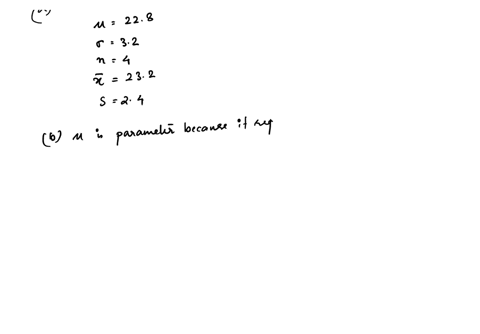 (a)
μ = 22.8
σ = 3.2
n = 4
x̄ = 23.2
s = 2.4
(b) μ is parameter because it rep